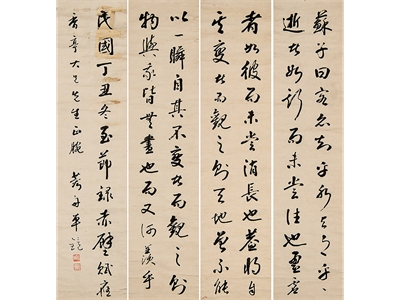 蘇子曰客亦知夫水與月乎
逝者如斯而未嘗往也盈虛
者如彼而未嘗消長也蓋將自
其變者而觀之則天地曾不能
以一瞬自其不變者而觀之則
物與我皆無盡也而又何羨乎
民國丁丑冬至節錄赤壁賦應
香亭大兄先生正腕